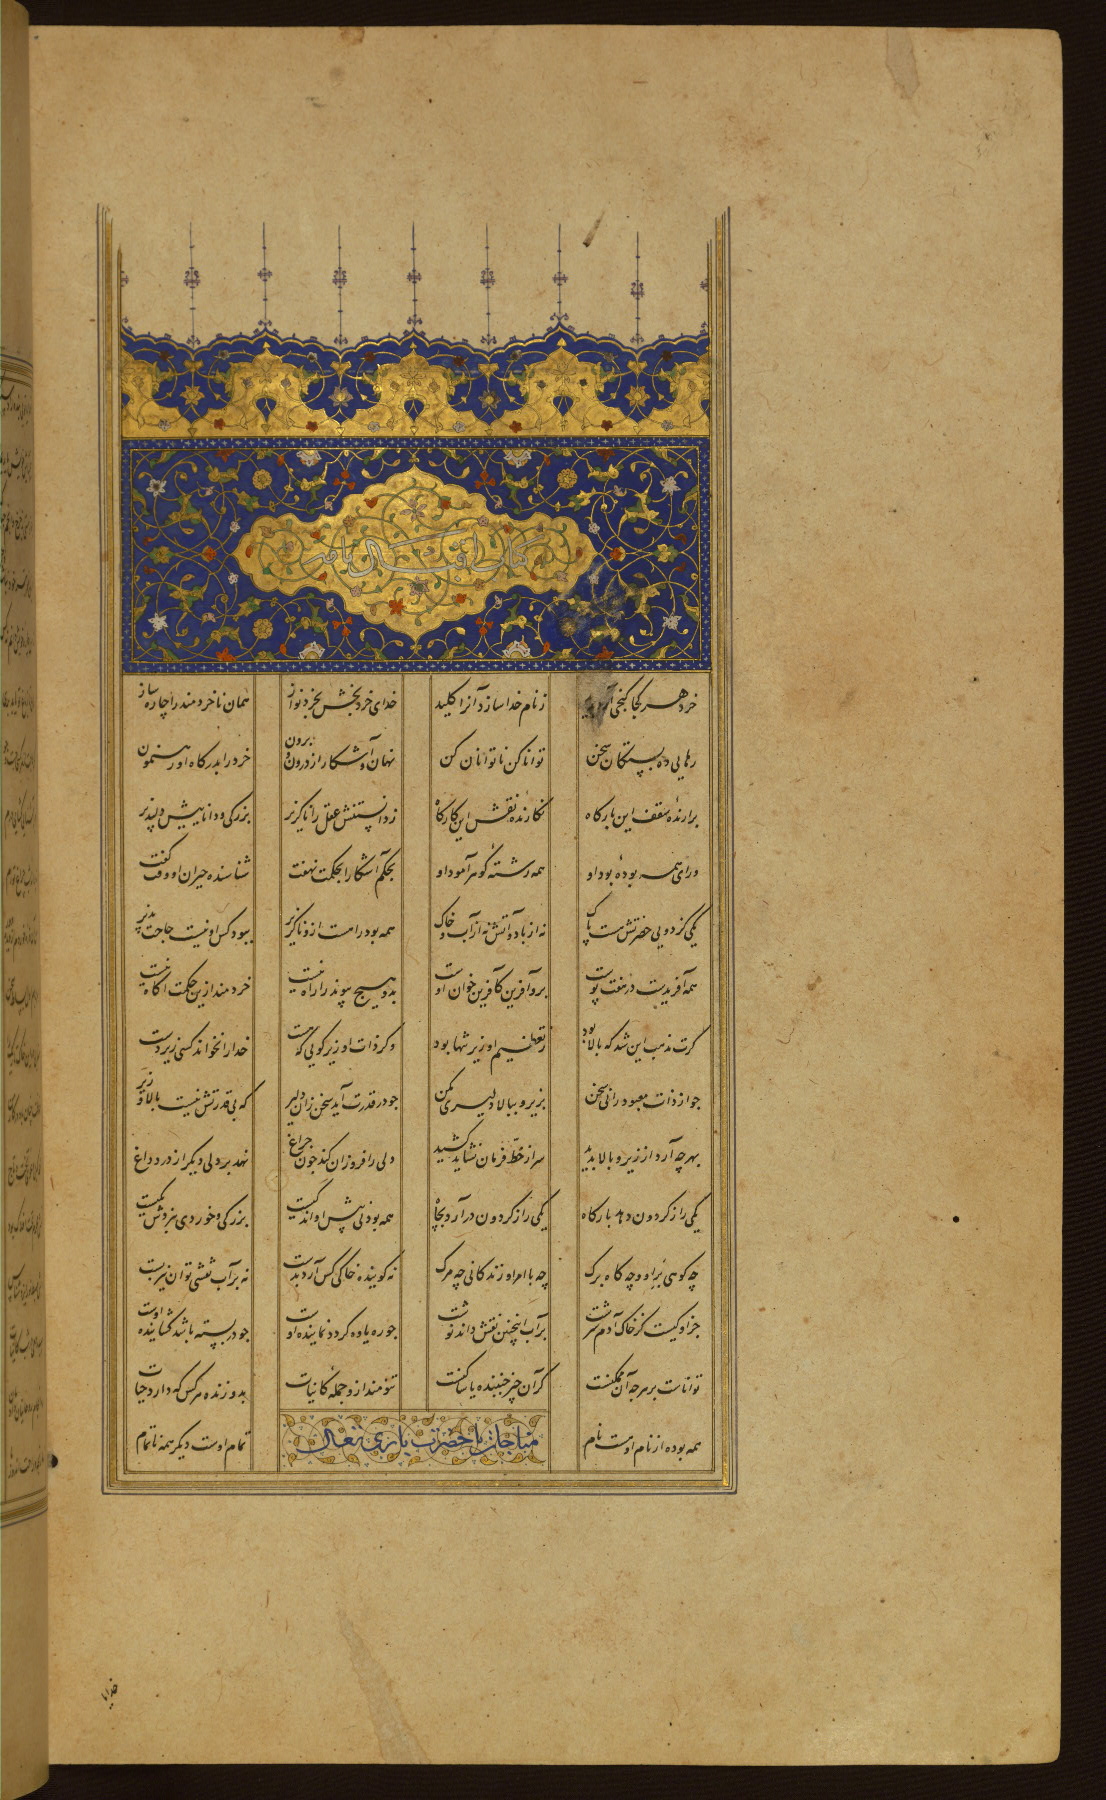 کتاب اقبال نامه
خرد هر کجا گنجی آرد پدید ز نام خدا سازد آنرا کلید خدای خرد بخش بخرد نواز همان ناخردمند را چاره ساز
رهایی ده بستگان سخن توانا کن ناتوانان کن نهان و آشکارا درون و برون خرد را بدرگاه او رهنمون
برارنده سقف این بارگاه نگارنده نقش این کارگاه ز دانستنش عقل را ناگزیر بزرگی و داناییش دلپذیر
ورای همه بودهٔ بود او همه رشتهٔ گوهر آمود او بحکم آشکارا بحکمت نهفت شناسنده حیران او وقت گفت
یکی کز دویی حضرتش هست پاک نه از باد و آتش نه از آب و خاک همه بود را هست ازو ناگزیر ببود کس او نیست حاجت پذیر
همه آفریدست در هفت پوست برو آفرین کآفرین خوان اوست بدو هیچ پوینده را راه نیست خردمند ازین حکمت آگاه نیست
گرت مذهب این شد که بالا بود ز تعظیم او زیر تنها بود وگر ذات او زیر گویی که هست خدا را نخواند کسی زیردست
چو از ذات معبود رانی سخن بزیر و ببالا دلیری مکن چو در قدرت آید سخن زان دلیر که بی قدرتش نیست بالا و زیر
بهر چه آرد از زیر و بالا پدید سر از خط فرمان نشاید کشید دلی را فروزان کند چون چراغ نهد بر دلی دیگر از درد داغ
یکی را ز گردون دهد بارگاه یکی را ز گردون درآرد بچاه همه بودنی پیش او اندکیست بزرگی و خوردی بنزدش یکیست
چه کوهی بر او و چه کاه برگ چه با امر او زندگانی چه مرگ نه گوینده خاکی کس آرد بدست نه بر آب نقشی توان نیز بست
جز او کیست کز خاک آدم سرشت بر آب اینچنین نقش داند نوشت چو ره یاوه گردد نماینده اوست چو در بسته باشد گشاینده اوست
تواناست بر هرچه آن ممکنست گر آن چیز جنبنده یا ساکنست تنومند ازو جملهٔ کاینات بدو زنده هر کس که دارد حیات
همه بوده از نام اوست نام تمام اوست دیگر همه ناتمام
مناجات با حضرت باری تعالی
خدایا